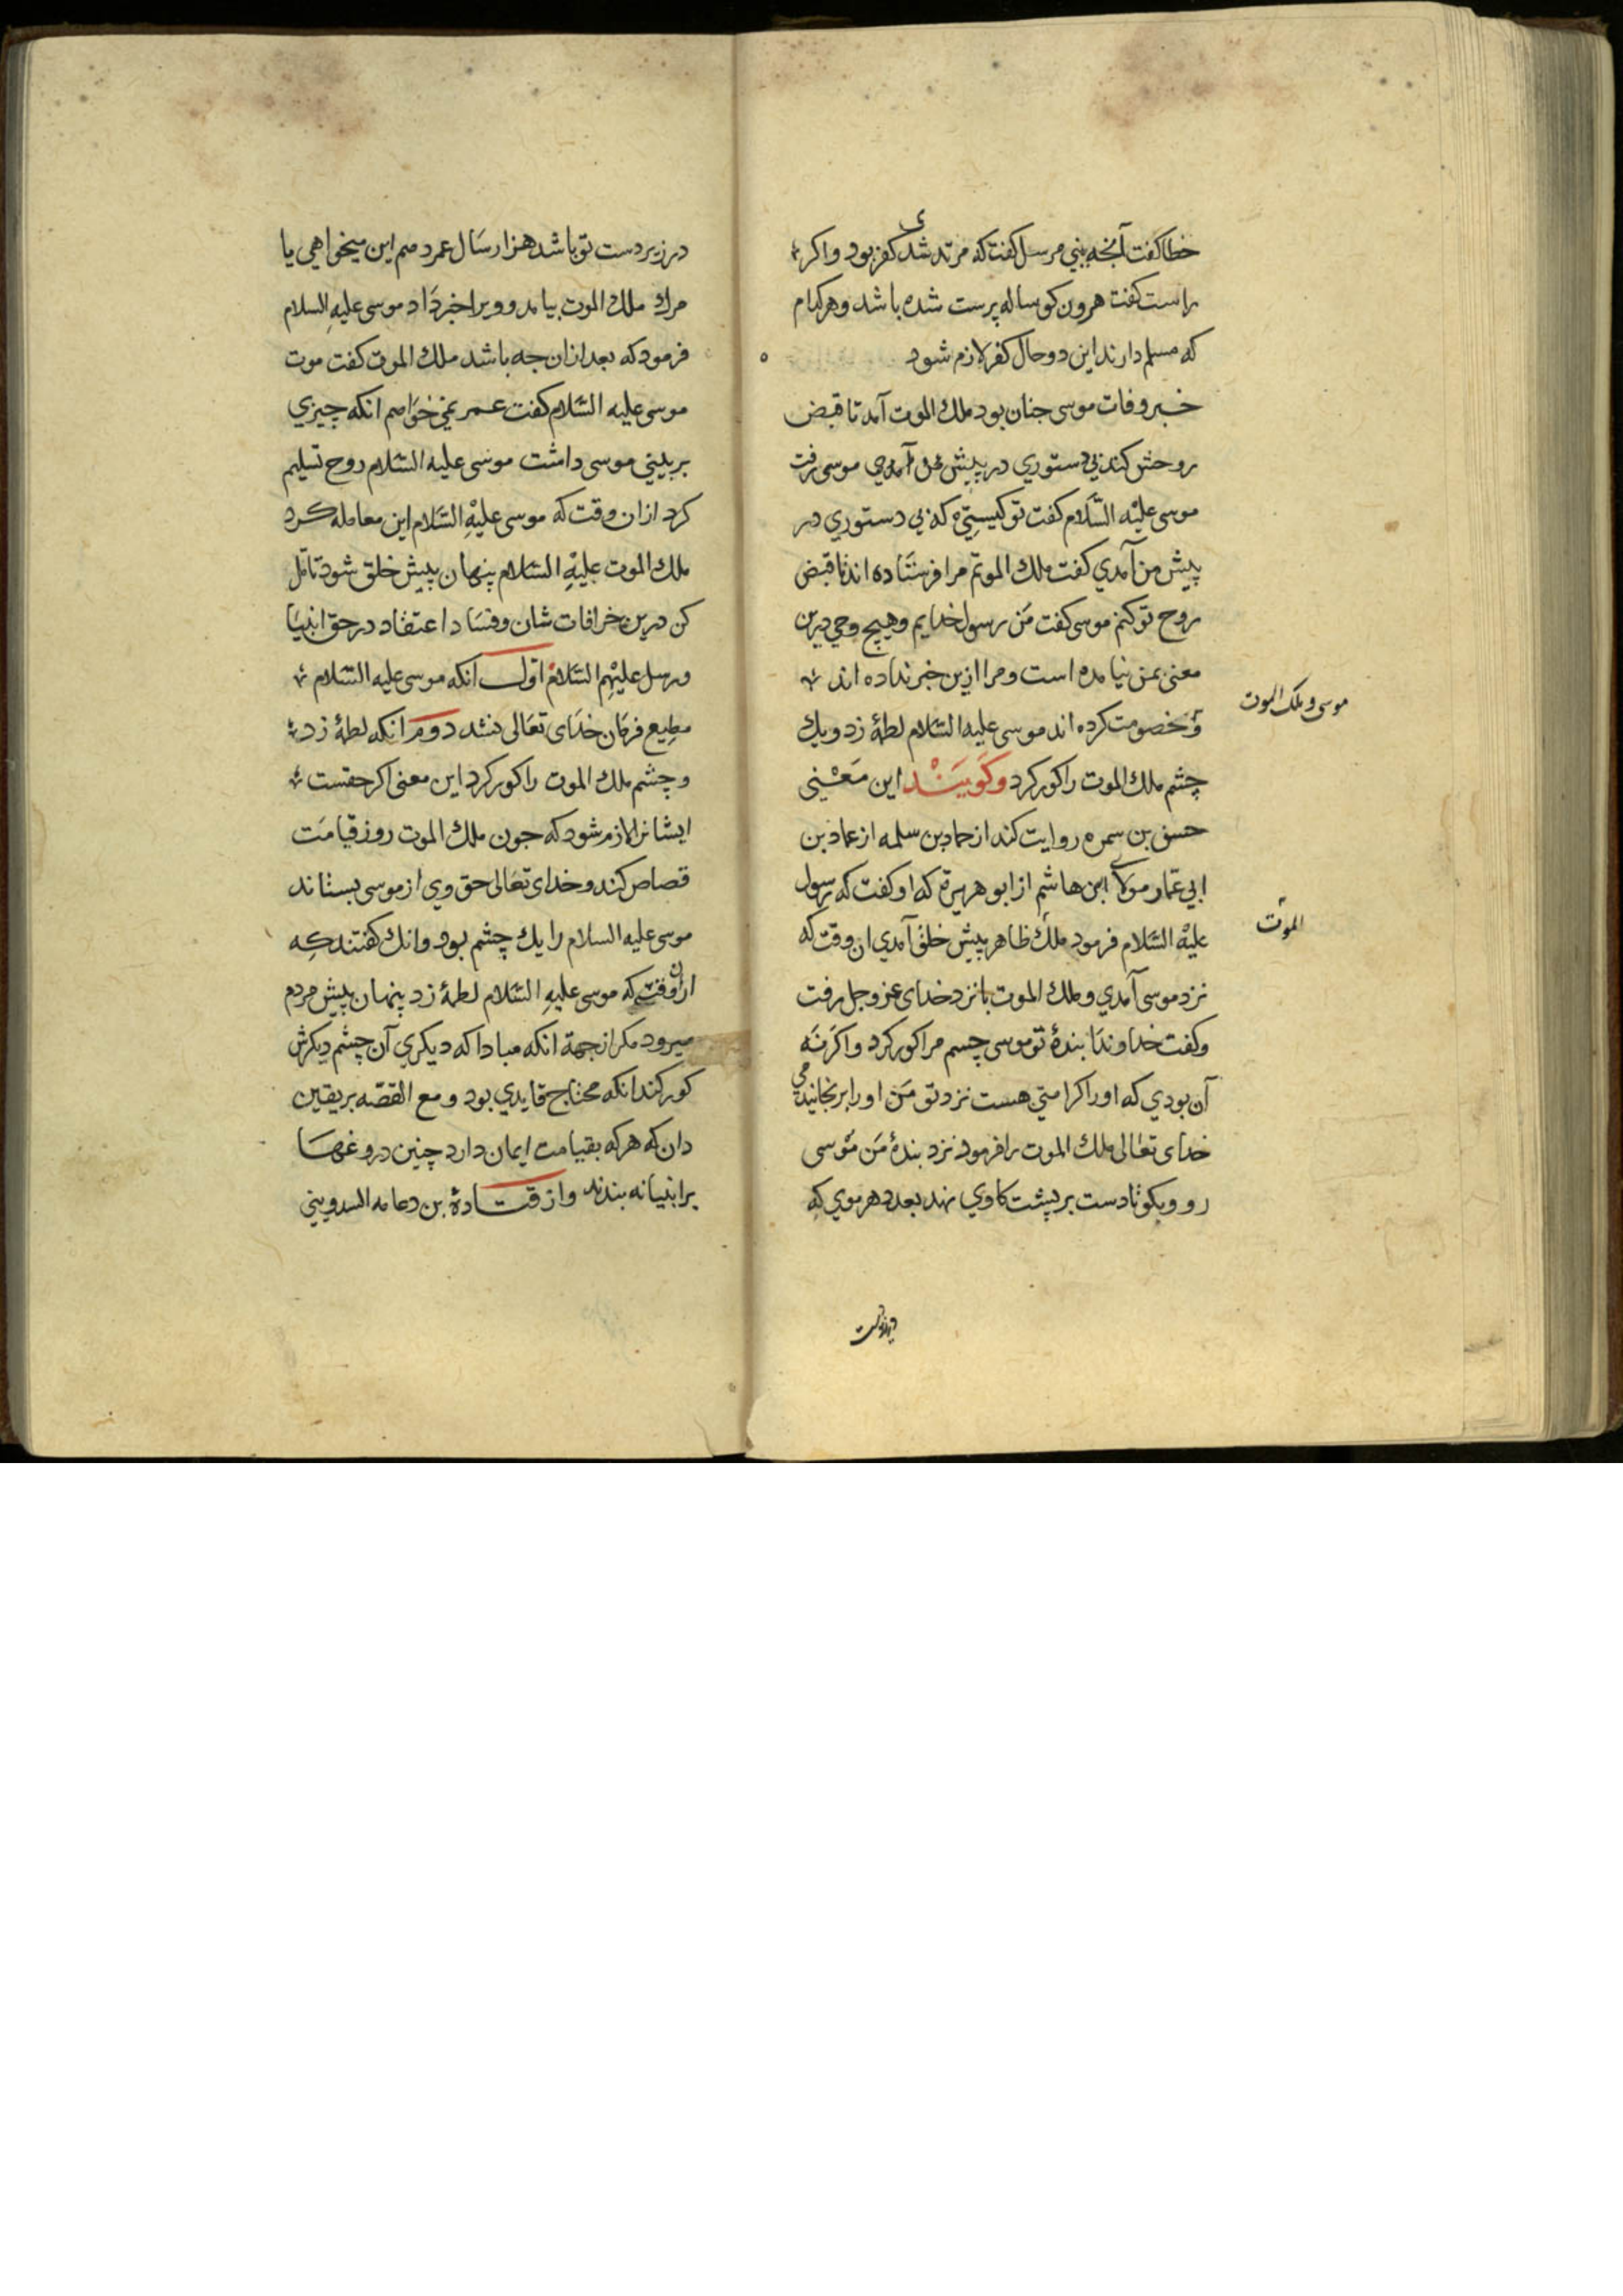 خطا گفت آنچه بنی مرسل گفت که مرتد شدی کفر بود و اکر
راست گفت هرون کوساله پرست شده باشد و هر کدام
که مسلم دارند این دو حال کفر لازم شود
خبر وفات موسی جنان بود ملك الموت آمد تا قبض
روحش کند بی دستوری در پیش موسی رفت
موسی علیه السلام کفت تو کیستی که بی دستوری در
پیش من آمدی کفت ملك الموتم مرا فرستاده اند تا قبض
روح تو کنم موسی کفت من رسول خدایم و هیچ وحی درین
معنی بمن نیامده است و مرا ازین خبر نداده اند
و خصومت کرده اند موسی علیه السلام لطمهٔ زد و یك
چشم ملك الموت را کور کرد و کویند این معنی
موسی و ملک الموت
حسن بن سمره روایت کند از حماد بن سلمه از عماد بن
ابی عمار مولای ابن هاشم از ابو هریرة که او کفت که رسول
علیه السلام فرمود ملك ظاهر پیش خلق آمدی ان وقت که
الموت
نزد موسی آمدی و ملك الموت با نزد خدای عز و جل رفت
و کفت خداوندا بندهٔ تو موسی چسم مرا کور کرد و اکر نه
آن بودی که او را کرامتی هست نزد تو من او را برنجانیدمی
خدای تعالی ملك الموت را فرمود نزد بندهٔ من موسی
رو و بکو تا دست بر پشت کاوی نهد بعدد هر موی که
در زیر دست
در زیر دست تو باشد هزار سال عمر دهم این میخواهی یا
مرك ملك الموت بیامد و ویرا خبر داد موسی علیه السلام
فرمود که بعد ازان جه باشد ملك الموت کفت موت
موسی علیه السلام کفت عمر نمی خواهم انکه چیزی
بر بینی موسی داشت موسی علیه السلام روح تسلیم
کرد ازان وقت که موسی علیه السلام این معامله کرد
ملك الموت علیه السلام پنهان پیش خلق شود تامّل
کن درین خرافات شان و فساد اعتقاد در حق انبیا
و رسل علیهم السلام اوّل انکه موسی علیه السلام
مطیع فرمان خدای تعالی نشد دوم انکه لطمهٔ زد
و چشم ملك الموت را کور کرد این معنی اکر حقست
ایشانرا لازم شود که جون ملك الموت روز قیامت
قصاص کند و خدای تعالی حق وی از موسی بستاند
موسی علیه السلام را یك چشم بود و انك کفتند که
ازان وقت که موسی علیه السلام لطمهٔ زد پنهان پیش مردم
میرود مکر از جهة انکه مبادا که دیکری آن چشم دیکرش
کور کند انکه محتاج قایدی بود و مع القصّه بریقین
دان که هر که بقیامت ایمان دارد چنین دروغها
بر انبیا نه بندند و از قتادهٔ بن دعامه السدوینی